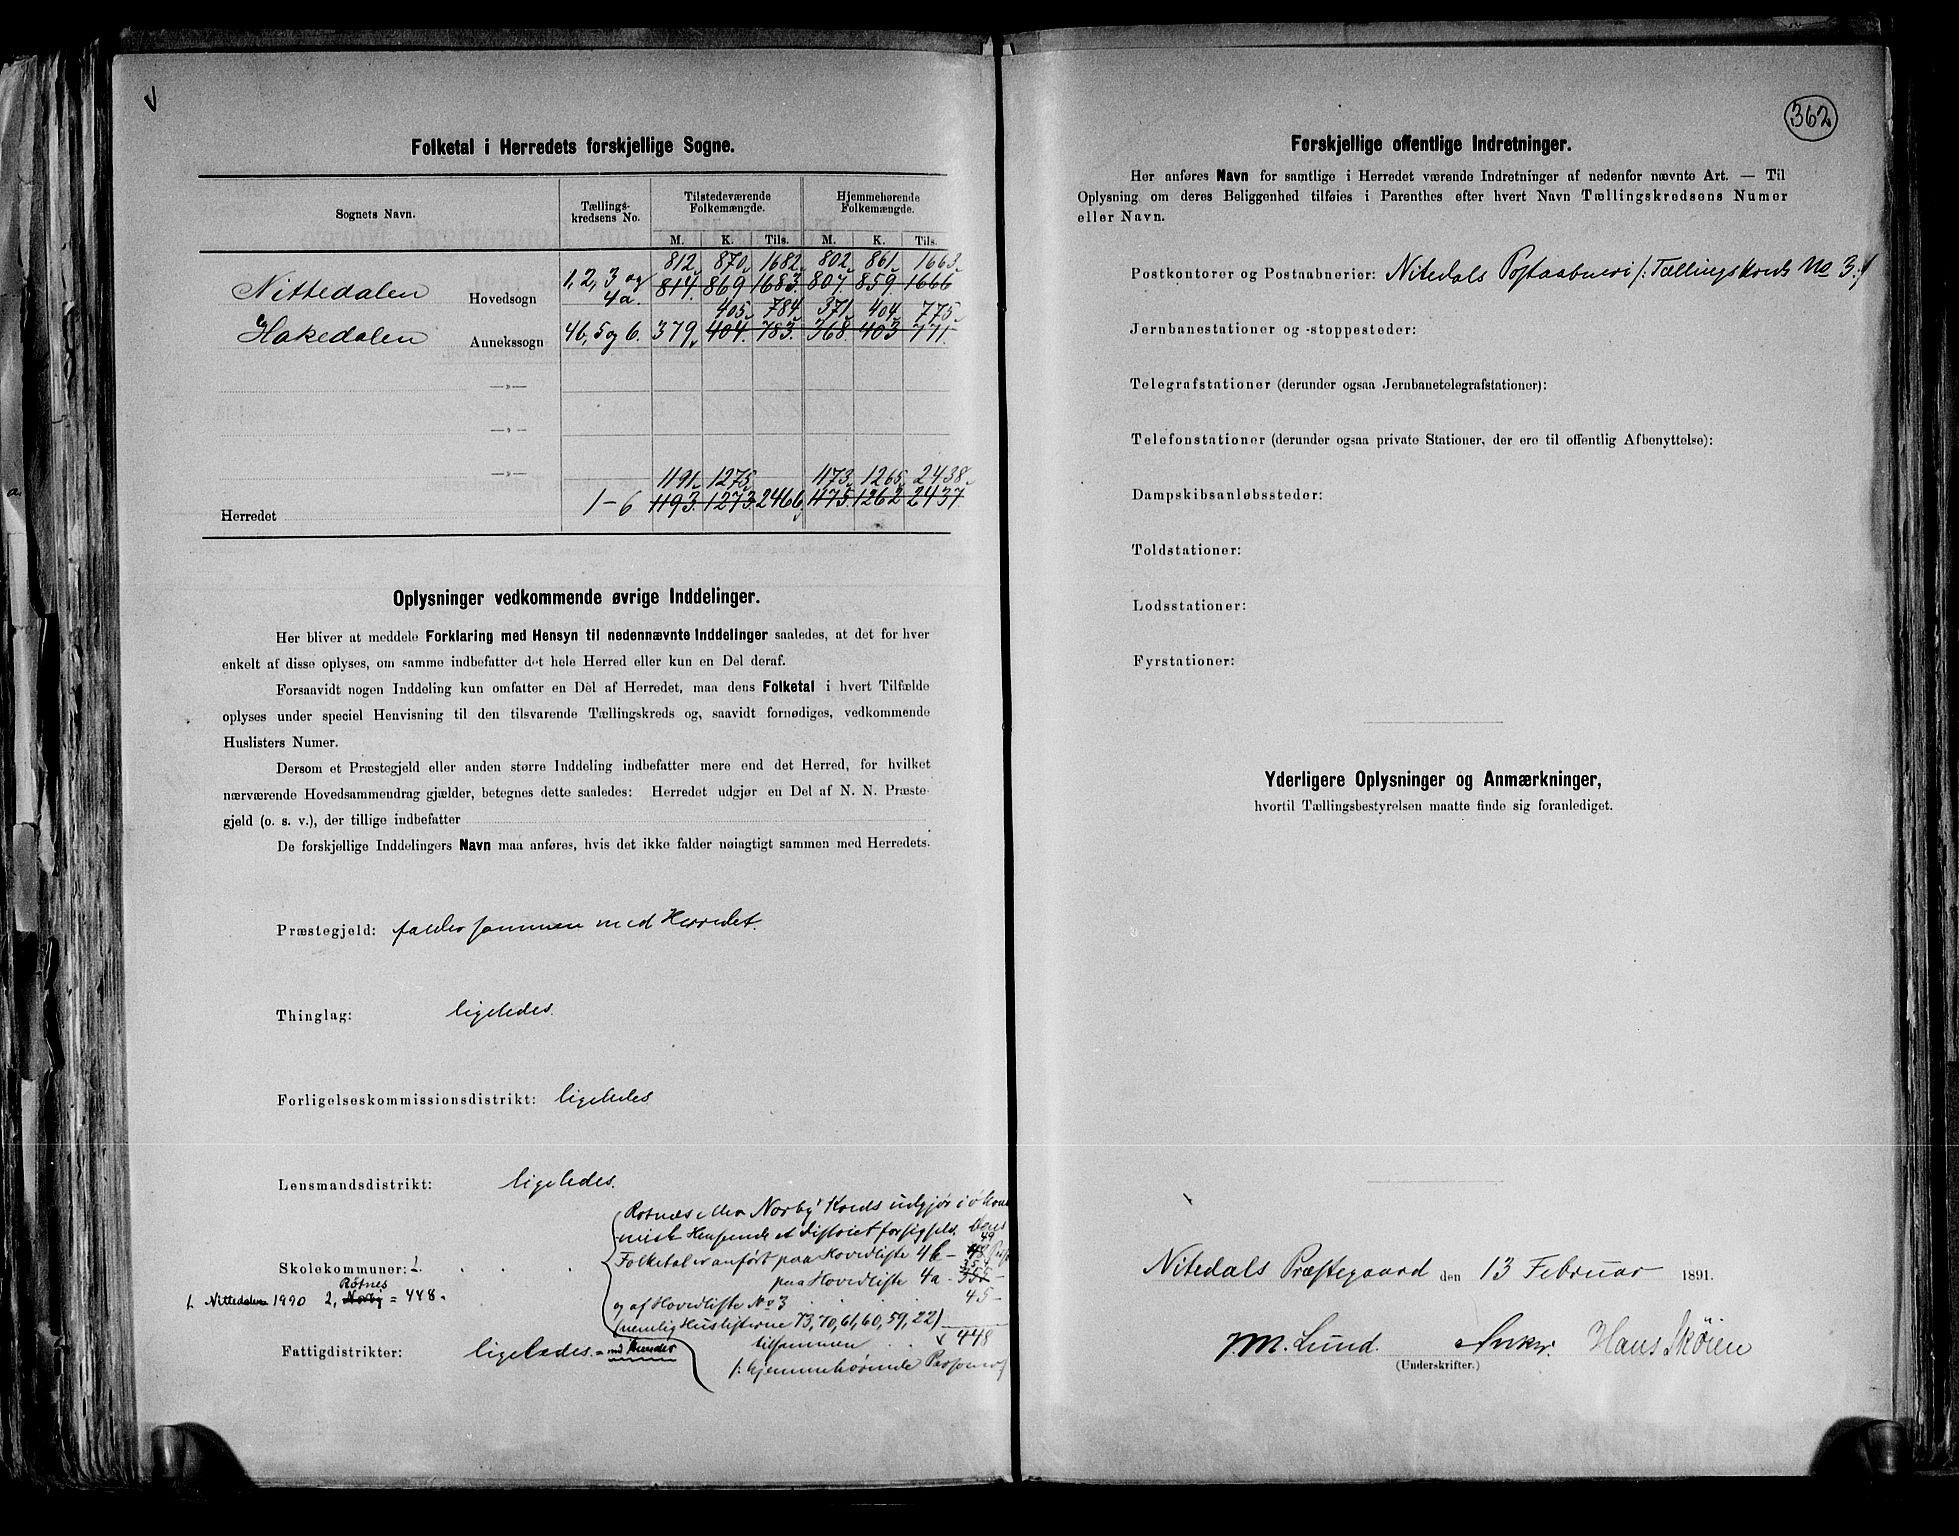 Folketal i Herredets forskjellige Sogne.
Sognets Navn. Tællings- kredsens No. Tilstedeværende Folkemængde. Hjemmehørende Folkemængde.
M. K. Tils. M. K. Tils.
812 870 1682 802 861 1663
Nittedalen Hovedsogn 1, 2, 3 og 4a. 814 869 1683 807 859 1666
405 784 371 404 775
Hakedalen Annekssogn 4b, 5 og 6. 379 404 783 368 403 771
—»—
—»—
—»— 1191 1275 1173 1265 2438
Herredet 1–6 1193 1273 2466 1175 1262 2437
Oplysninger vedkommende øvrige Inddelinger.
Her bliver at meddele Forklaring med Hensyn til nedennævnte Inddelinger saaledes, at det for hver
enkelt af disse oplyses, om samme indbefatter det hele Herred eller kun en Del deraf.
Forsaavidt nogen Inddeling kun omfatter en Del af Herredet, maa dens Folketal i hvert Tilfælde
oplyses under speciel Henvisning til den tilsvarende Tællingskreds og, saavidt fornødiges, vedkommende
Huslisters Numer.
Dersom et Præstegjeld eller anden større Inddeling indbefatter mere end det Herred, for hvilket
nærværende Hovedsammendrag gjælder, betegnes dette saaledes: Herredet udgjør en Del af N. N. Præste-
gjeld (o. s. v.), der tillige indbefatter
De forskjellige Inddelingers Navn maa anføres, hvis det ikke falder nøiagtigt sammen med Herredets.
Præstegjeld: falder sammen med Herredet.
Thinglag: ligeledes.
Forligelseskommissionsdistrikt: ligeledes
Lensmandsdistrikt: ligeledes.
Rotnæs eller Norby Kreds udgjør i økono-
misk Henseende et District for sig selv. Dens
49
Folketal er anført paa Hovedliste 4b – 48
354
paa Hovedliste 4a – 355 –
og af Hovedliste No 3 45 –
(nemlig Huslisterne 73, 70, 61, 60, 59, 22)
tilsammen 448
/: hjemmehørende Personer
Skolekommuner: 2.
Rotnes
1. Nittedalen 1990 2, Norby = 448.
Fattigdistrikter: ligeledes.
362
Forskjellige offentlige Indretninger.
Her anføres Navn for samtlige i Herredet værende Indretninger af nedenfor nævnte Art. — Til
Oplysning om deres Beliggenhed tilføies i Parenthes efter hvert Navn Tællingskredsens Numer
eller Navn.
Postkontorer og Postaabnerier: Nitedals Postaabneri /: Tællingskreds No 3 :/
Jernbanestationer og -stoppesteder:
Telegrafstationer (derunder ogsaa Jernbanetelegrafstationer):
Telefonstationer (derunder ogsaa private Stationer, der ere til offentlig Afbenyttelse):
Dampskibsanløbssteder:
Toldstationer:
Lodsstationer:
Fyrstationer:
Yderligere Oplysninger og Anmærkninger,
hvortil Tællingsbestyrelsen maatte finde sig foranlediget.
Nitedals Præstegaard den 13 Februar 1891.
J. M. Lund. Anker. Hans Skøien
(Underskrifter.)